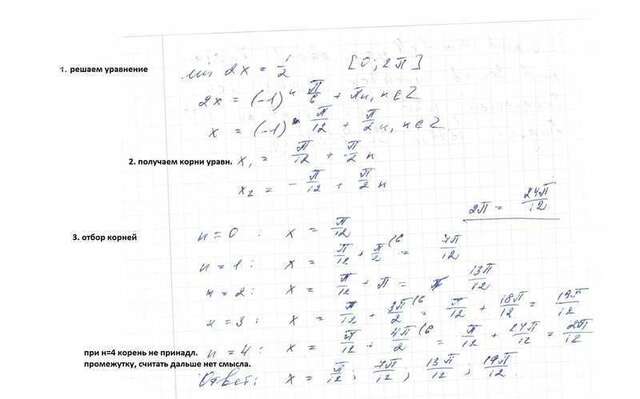 1. решаем уравнение sin 2x = 1/2 [0; 2π]
2x = (-1)ⁿ π/6 + πn, n∈Z
x = (-1)ⁿ π/12 + π/2 n, n∈Z
2. получаем корни уравн. x₁ = π/12 + π/2 n
x₂ = - π/12 + π/2 n
2π = 24π/12
3. отбор корней n=0: x = π/12
n=1: x = π/12 + π/2 (6 = 7π/12
n=2: x = π/12 + π = 13π/12
n=3: x = π/12 + 3π/2 (6 = π/12 + 18π/12 = 19π/12
при н=4 корень не принадл. n=4: x = π/12 + 4π/2 (6 = π/12 + 24π/12 = 25π/12
промежутку, считать дальше нет смысла.
Ответ: x = π/12; 7π/12; 13π/12; 19π/12.